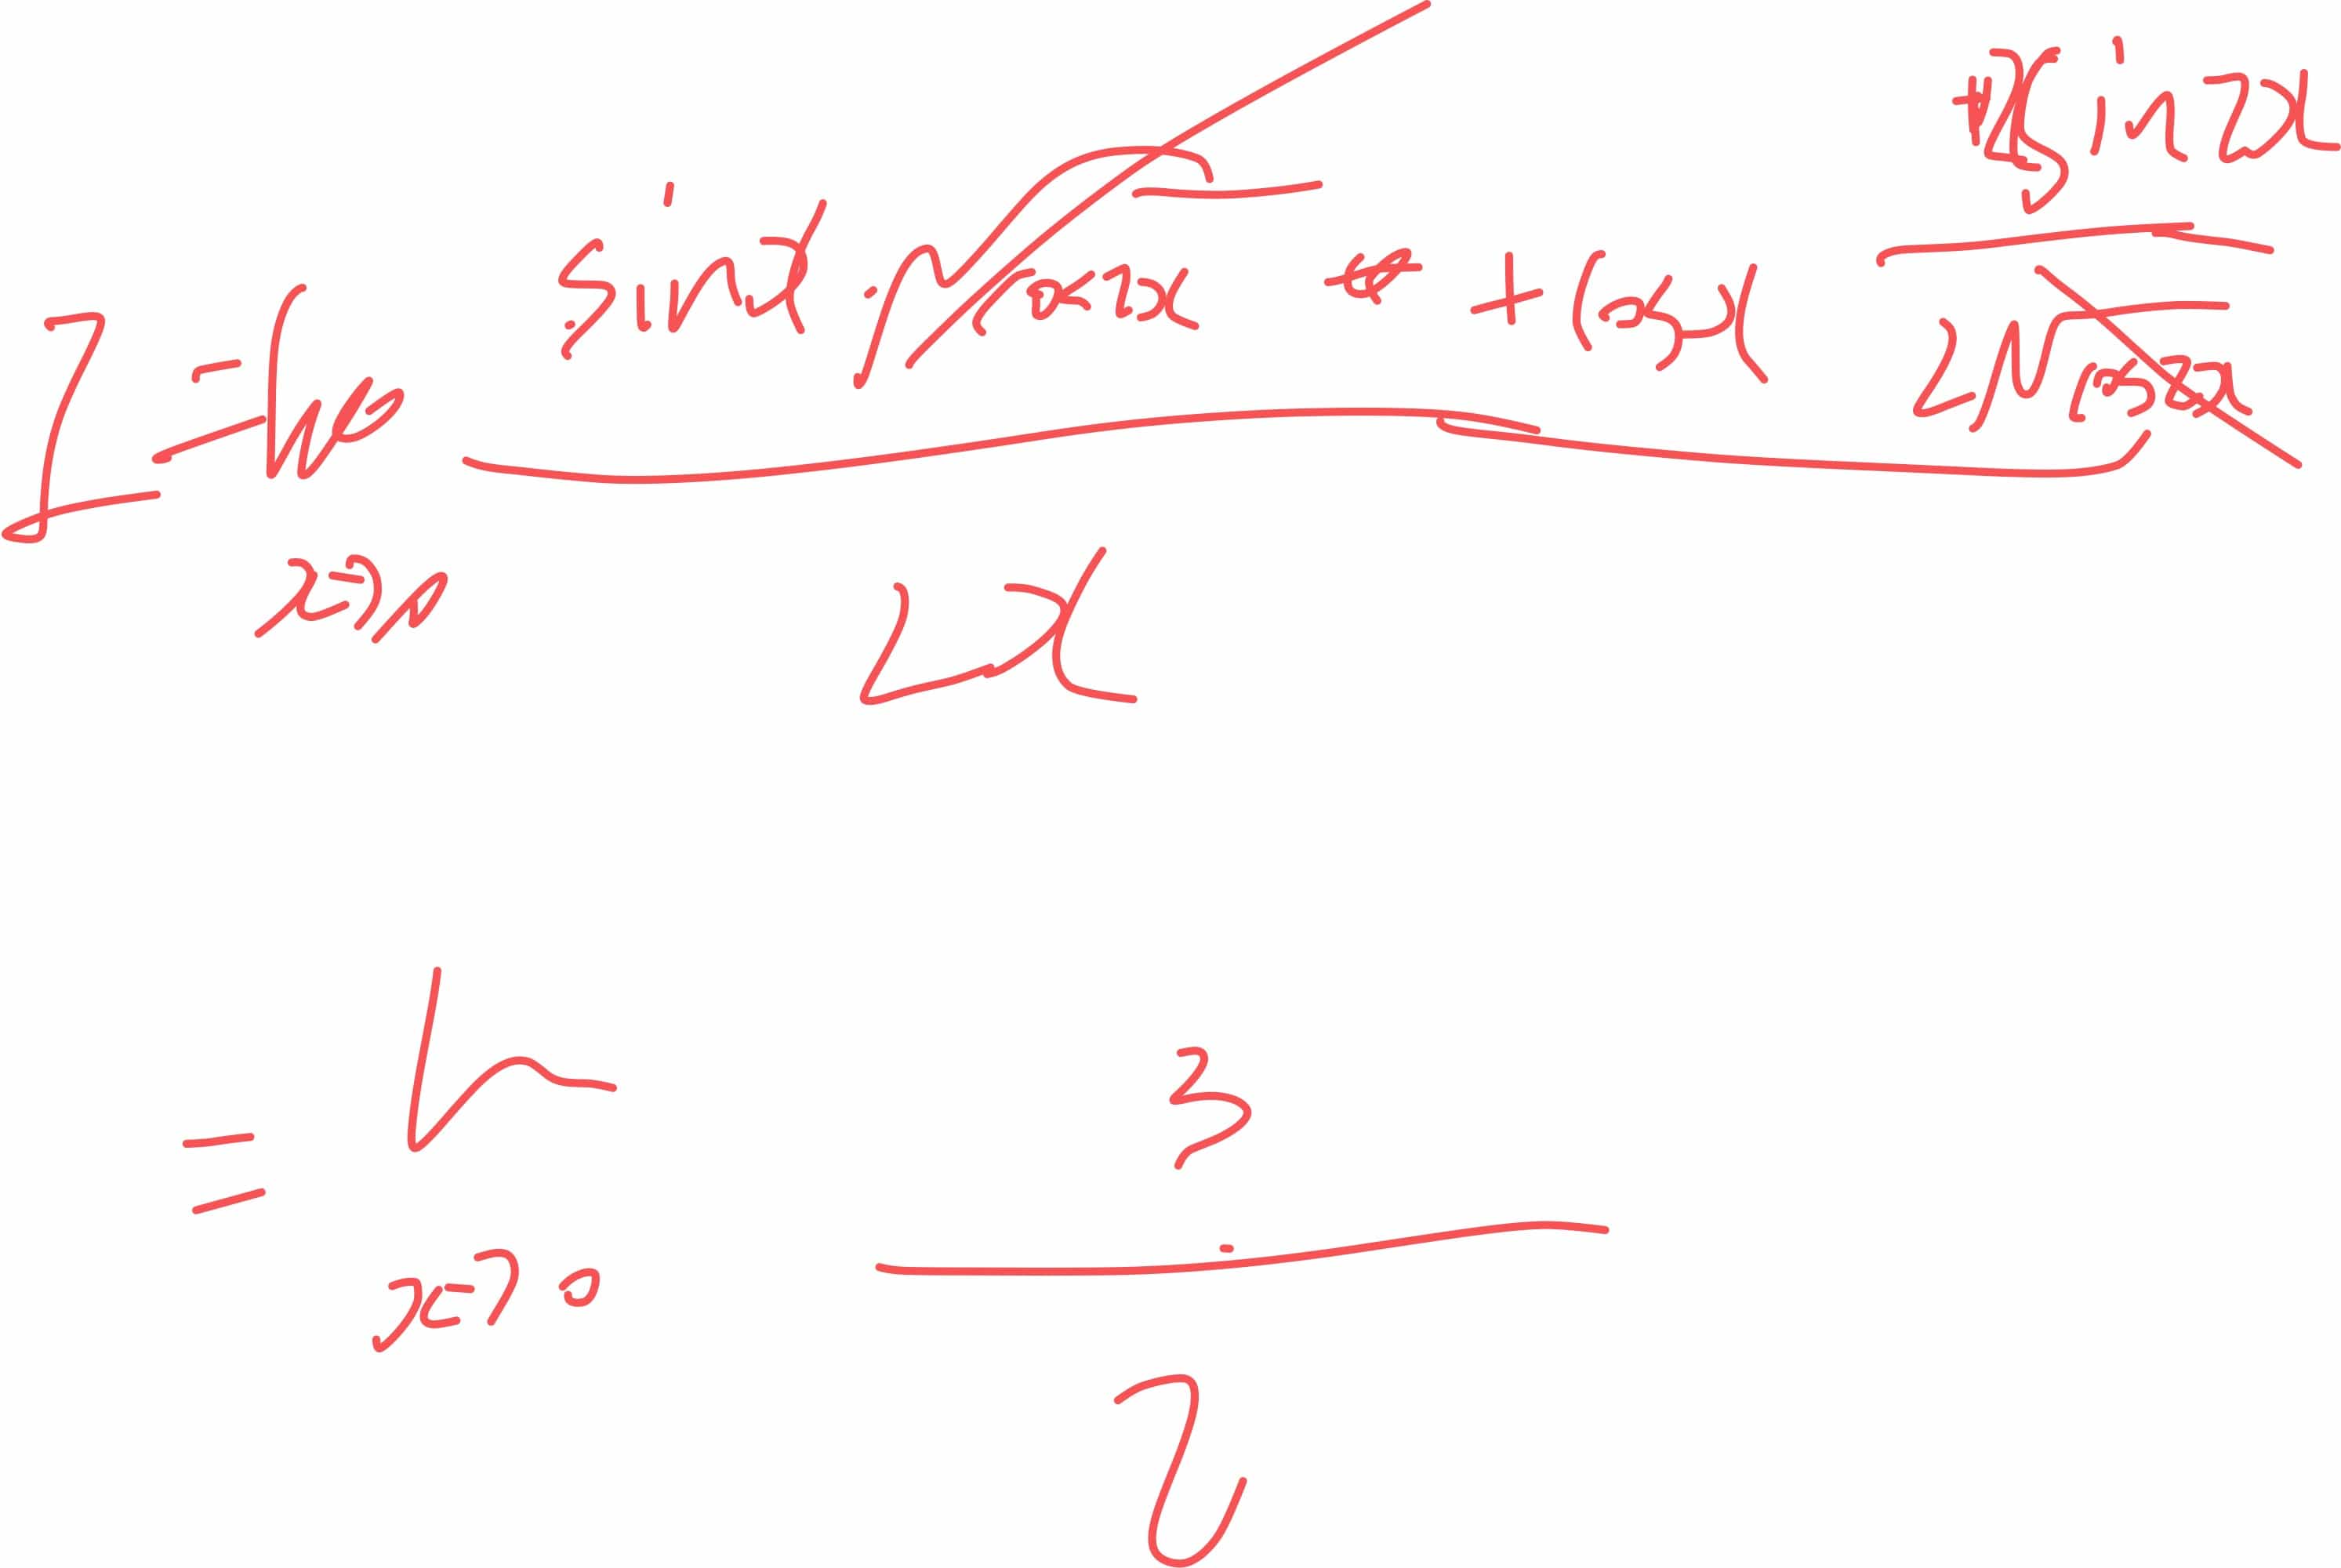 I = lim x→0 (sin x · √(cos 2x) + cos x (2 sin 2x)/(2√(cos 2x))) / 2x
= L x→0 3/2